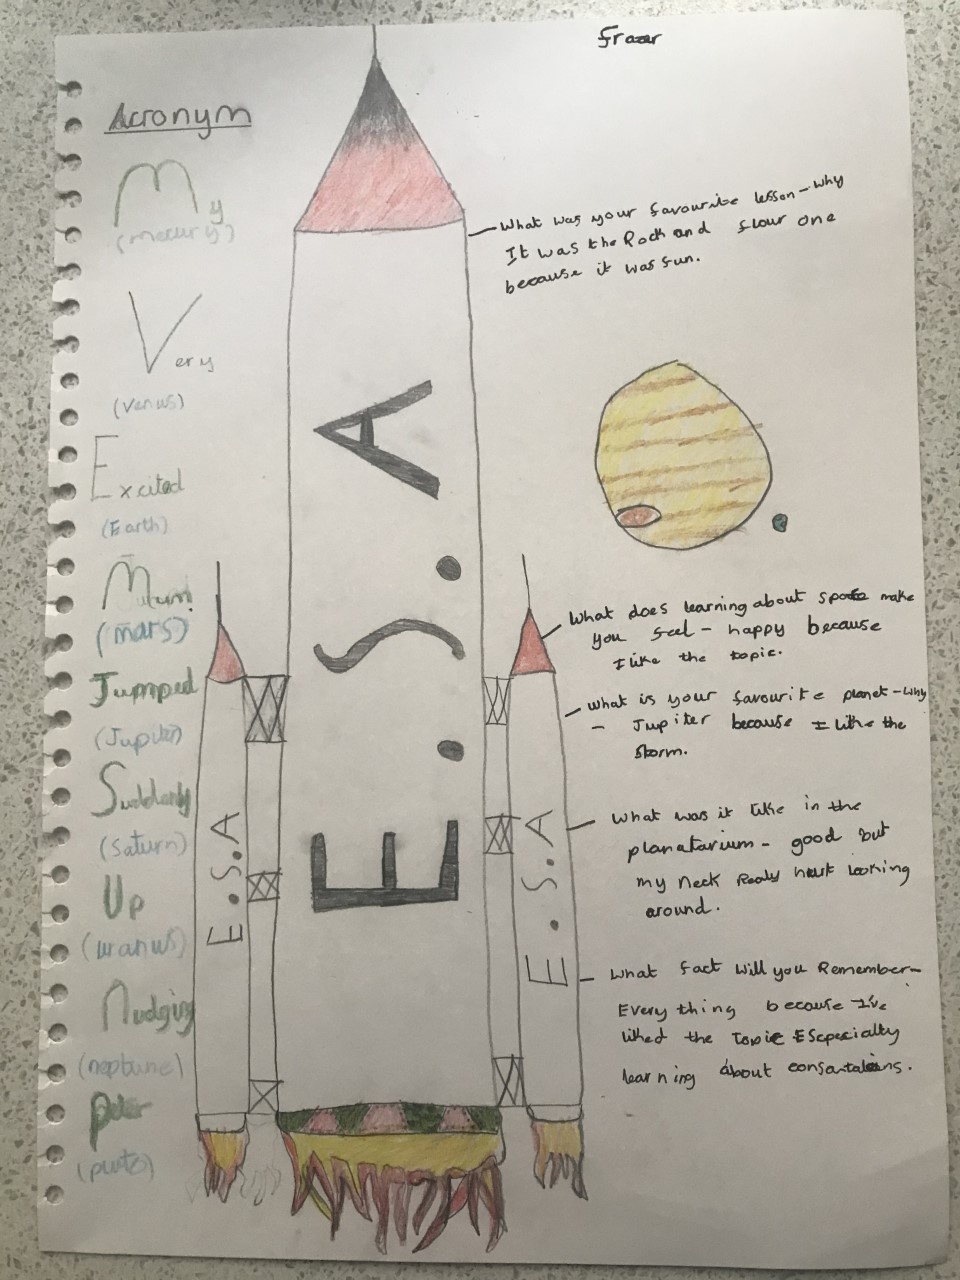 Frazer
Acronym
My
(mercury)
Very
(Venus)
Excited
(Earth)
(mars)
Jumped
(Jupiter)
Suddenly
(Saturn)
Up
(uranus)
Nudging
(neptune)
Peter
(pluto)
E.S.A
E.S.A
E.S.A
What was your favourite lesson - why
It was the Rock and flour one
because it was fun.
What does learning about space make
you feel - happy because
I like the topic.
What is your favourite planet - why
- Jupiter because I like the
Storm.
What was it like in the
planatarium - good but
my neck Realy hurt looking
around.
What fact will you Remember -
Everything because I've
liked the topic ESepecially
learning about